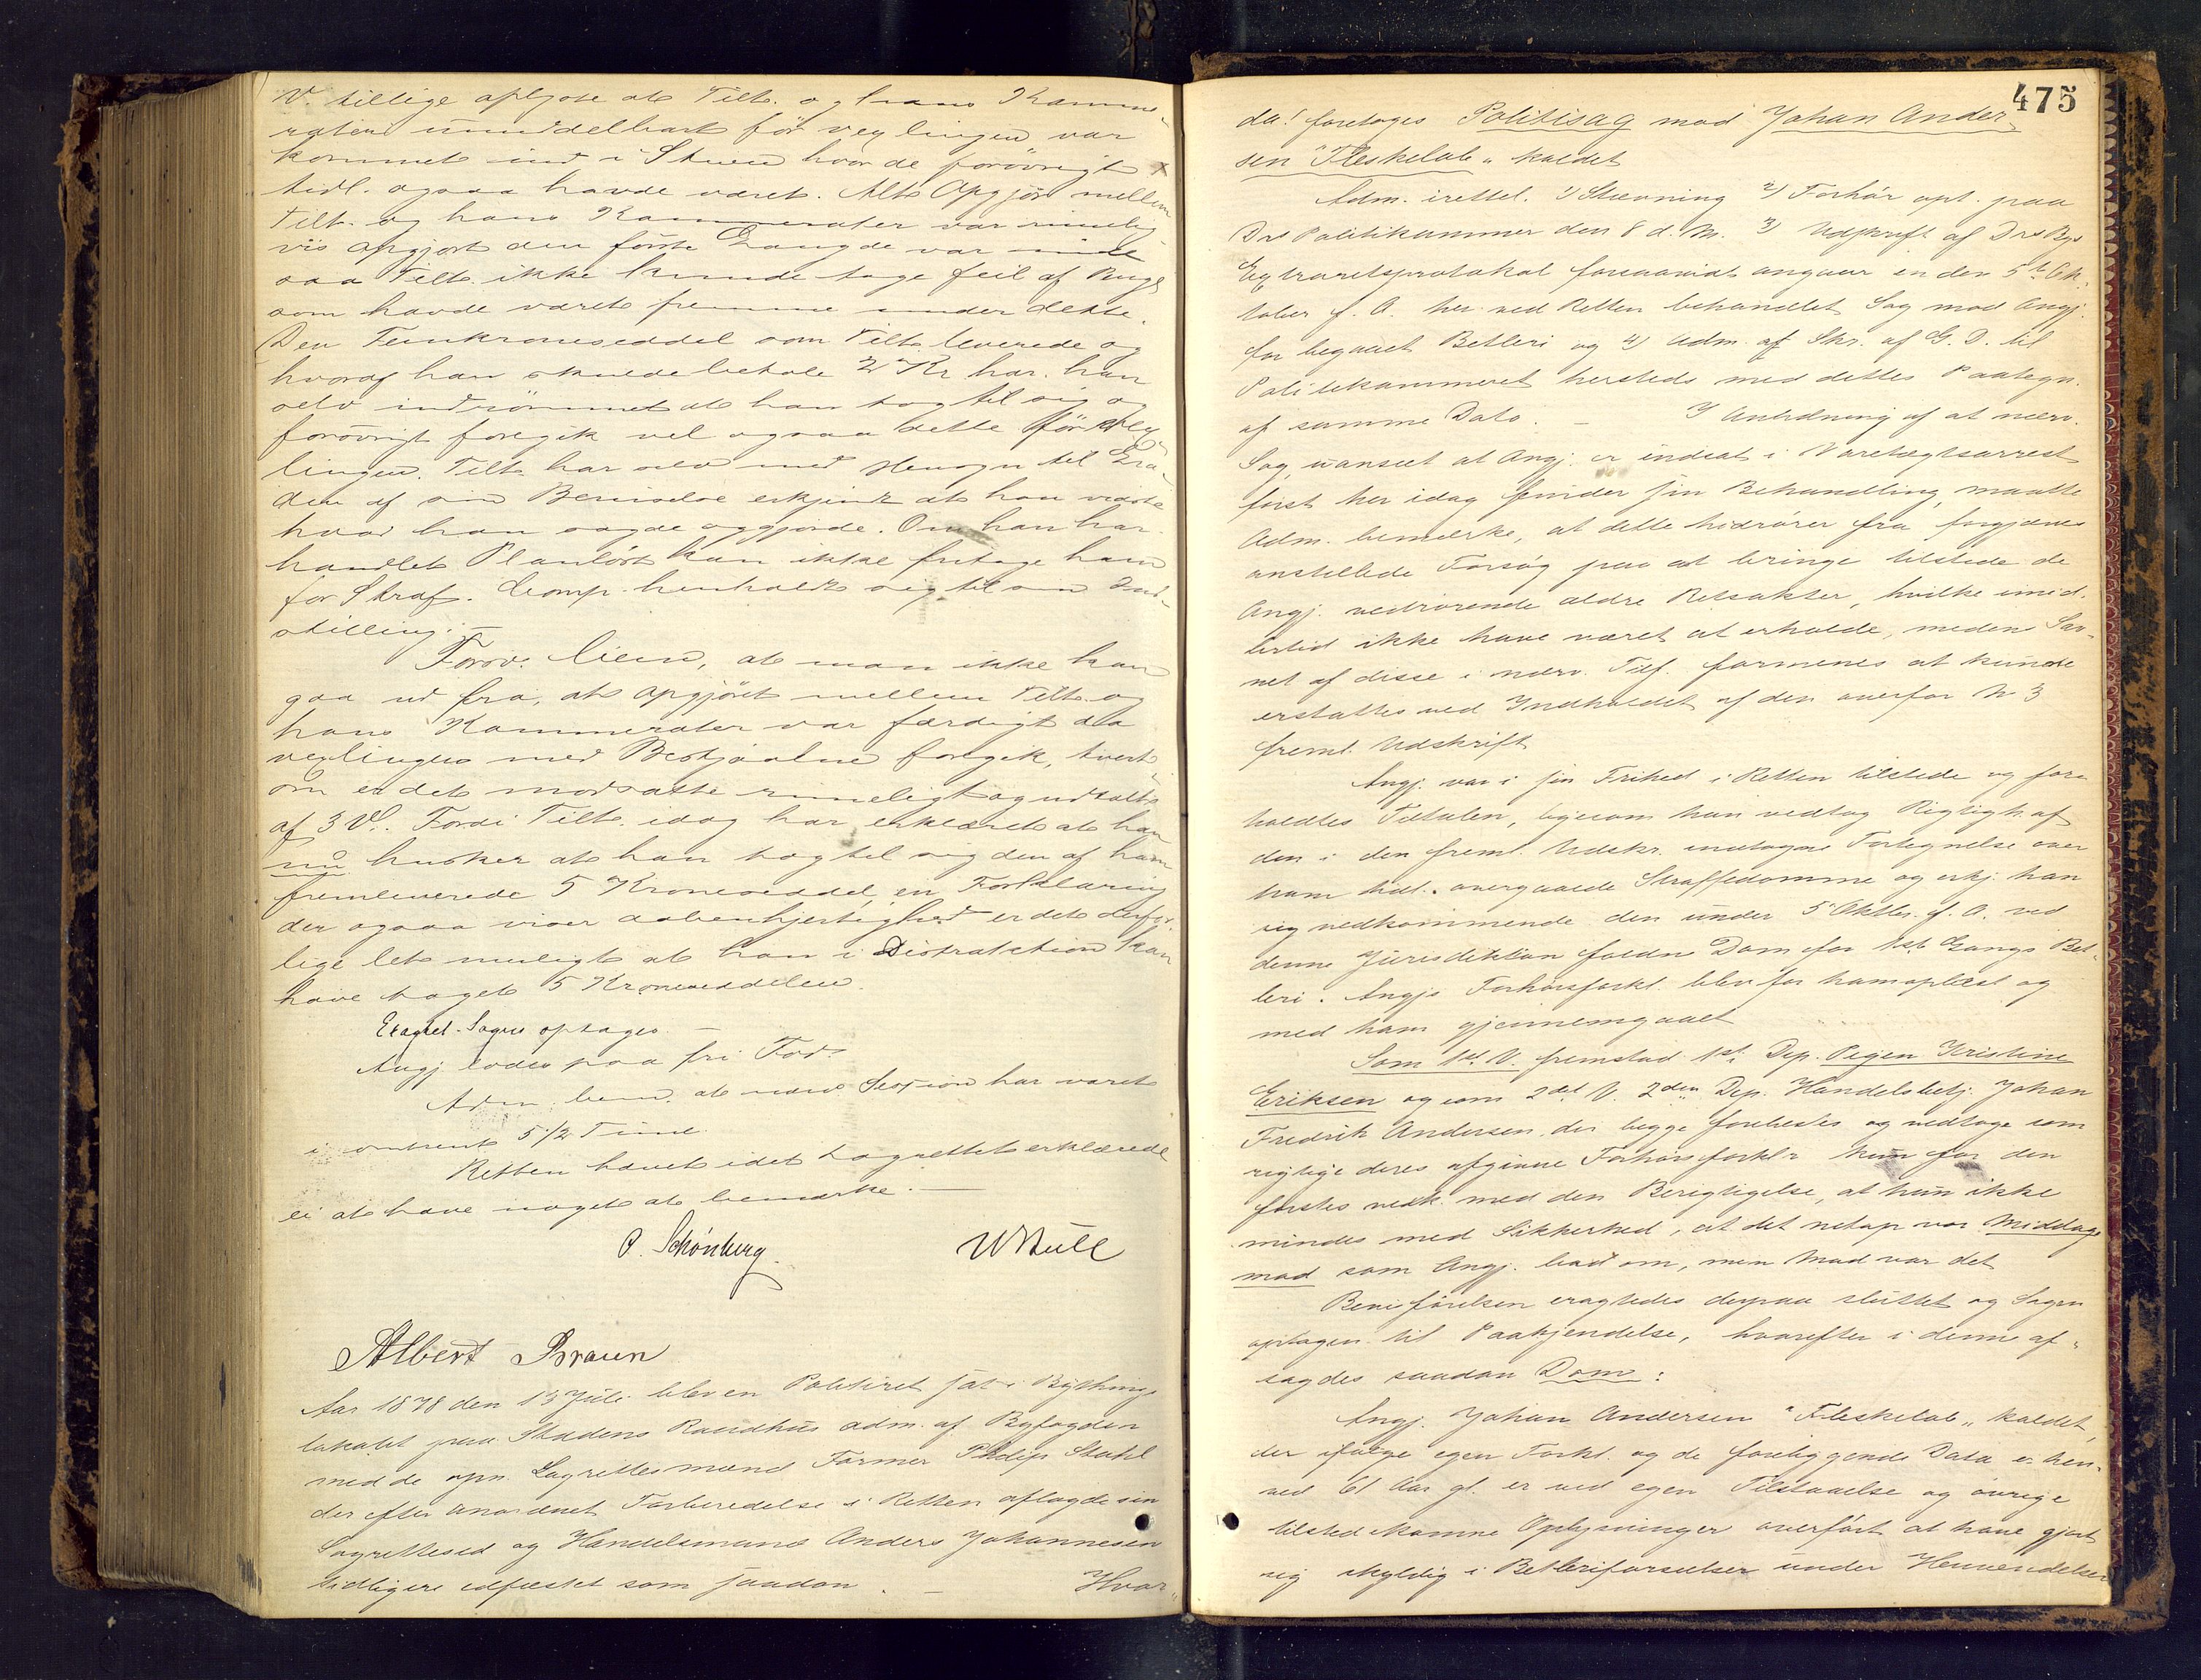 V. tillige oplyste at Tilt. og hans Kamme-
rater umiddelbart før vexlingen var
kommet ind i Stuen hvor de forøvrigt
tidl. ogsaa havde været. Alt Opgjør mellem
Tilt. og hans Kammerater var rimelig
vis opgjort den første Gang de var inde
saa Tilt. ikke kunde tage feil af Penge
som havde været fremme under dette.
Den Femkroneseddel som Tilt. leverede og
hvoraf han skulde betale 2 Kr har han
selv indrømmet at han tog til sig og
forøvrigt foregik vel ogsaa dette før vex
lingen. Tilt. har selv med Hensyn til Gra-
den af sin Beruselse erkjendt at han vidste
hvad han sagde og gjorde. Om han har
handlet Planløst kan ikke fritage ham
for Straf. Comp. henholdt sig til sin Ind-
stilling. —
Forsv. , at man ikke kan
gaa ud fra, at opgjøret mellem Tilt. og
hans Kammerater var færdigt da
vexlingen med Bestjælne foregik, tvert-
om er det modsatte rimeligt og udtalt
af 3 V. Fordi Tilt. idag har erklæret at han
nu husker at han tog til sig den af ham
fremleverede 5 Kroneseddel, en Forklaring
der ogsaa viser aabenhjertighed er det derfor
lige let muligt at han i Distraktion kan
have taget 5 Kroneseddelen.
Eragtet. Sagen optages —
Angj. lodes paa fri Fod.
Adm. bem. at nærv. Session har varet
i omtrent 5 1/2 Time.
Retten hævet idet Lagrettet erklærede
ei at have noget at bemærke. —
P. Schønberg. W Bull
Albert Braun
Aar 1898 den 13 Juli blev en Politiret sat i Bythings
lokalet paa Stadens Raadhus adm. af Byfogden
med de opn. Lagrettesmænd Farmer Philip Stahl
der efter anordnet Forberedelse i Retten aflagde sin
Lagrettesed og Handelsmand Anders Johannesen
tidligere edfæstet som saadan. — Hvor-
475
da! foretoges Politisag mod Johan Ander-
sen "Fleskelab" kaldet
Adm. irettel. 1) Stævning 2) Forhør opt. paa
Drs Politikammer den 8 d. M. 3) Udskrift af Drs Bys
Extraretsprotokol forsaavidt angaar en den 5te Ok-
tober f. A. her ved Retten behandlet Sag mod Angj.
for begaaet Betleri og 4) Adm. af Skr. af G. D. til
Politikammeret hersteds med dettes Paategn.
af samme Dato. — I Anledning af at nærv.
Sag, uanseet at Angj. er indsat i Varetægtsarrest
først her idag finder sin Behandling, maatte
Adm. bemærke, at dette hidrører fra forgjæves
anstillede Forsøg paa at bringe tilstede de
Angj. vedrørende ældre Retsakter, hvilke imid-
lertid ikke have været at erholde, meden Sav-
net af disse i nærv. Tilf. formenes at kunde
erstattes ved Indholdet af den overfor N 3
freml. Udskrift
Angj. var i sin Frihed i Retten tilstede og fore
holdtes Tiltalen, ligesom han vedtog Rigtigh. af
den i den freml. Udskr. indtagne Fortegnelse over
ham tidl. overgaaede Straffedomme og erkj. han
sig vedkommende den under 5 Oktbr. f. A. ved
denne Jurisdiktion faldne Dom for 1st Gangs Bet-
leri. Angjs Forhørsforkl. blev for ham oplæst og
med ham gjennemgaaet
Som 1st V. fremstod 1st Dep. Pigen Kristine
Eriksen og som 2det V. 2den Dep. Handelsbetj. Johan
Fredrik Andersen der begge foreholdtes og vedtoge som
rigtige deres afgivne Forhørsforkl.r kun for den
førstes vedk. med den Berigtigelse, at hun ikke
mindes med Sikkerhed, at det netop var Middags
mad som Angj. bad om, men Mad var det
Bevisførelsen eragtedes derpaa sluttet og Sagen
optagen til Paakjendelse, hvorefter i denne af-
sagdes saadan Dom:
Angj. Johan Andersen "Fleskelab" kaldet,
der ifølge egen Forkl. og de foreliggende Data er hen-
ved 61 Aar gl. er ved egen Tilstaaelse og øvrige
tilstedekomne Oplysninger overført at have gjort
sig skyldig i Betleriforseelser under Henvendelser